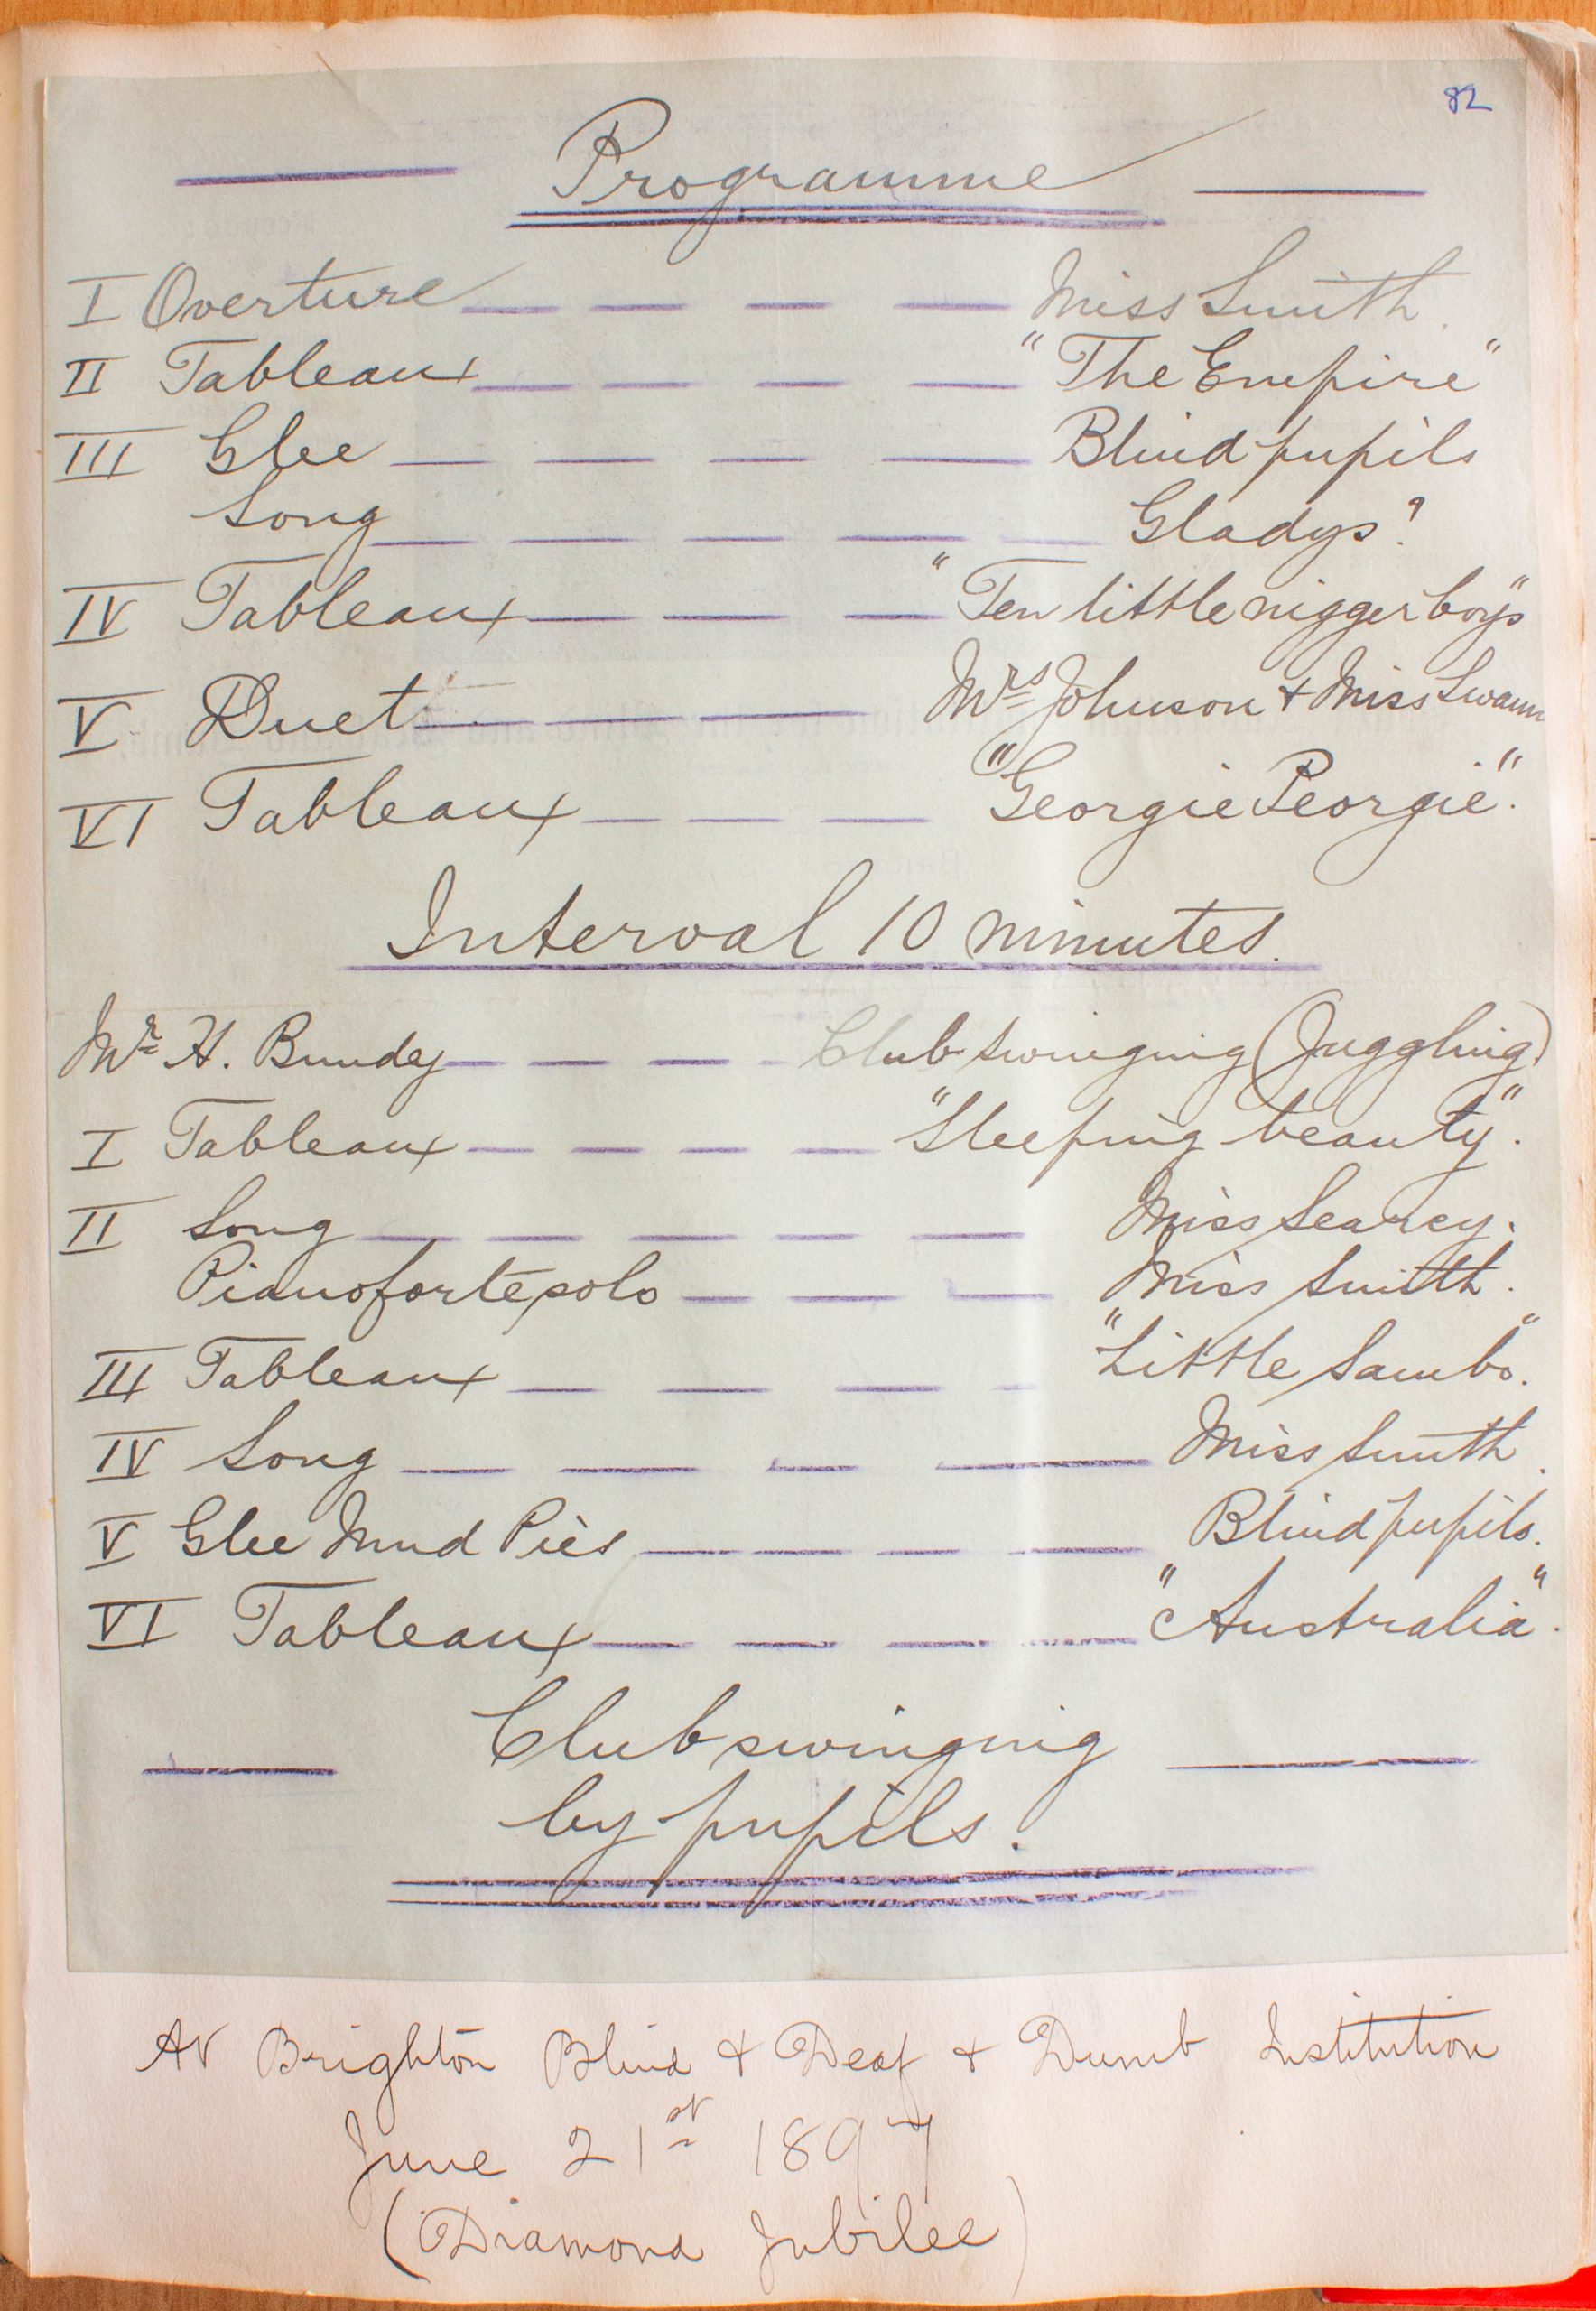 82
Programme
I Overture Miss Smith.
II Tableaux "The Empire"
III Glee Blind pupils
Song Gladys?
IV Tableaux "Ten little nigger boys"
V Duet Mrs Johnson + Miss Swann
VI Tableaux "Georgie Peorgie".
Interval 10 minutes.
Mr H. Bundey Club swinging (Juggling)
I Tableaux "Sleeping beauty".
II Song Miss Searcy.
Pianoforte solo Miss Smith.
III Tableaux "Little Sambo".
IV Song Miss Smith.
V Glee Mud Pies Blind pupils.
VI Tableaux "Australia".
Club swinging
by pupils.
At Brighton Blind + Deaf + Dumb Institution
June 21st 1897
(Diamond Jubilee)